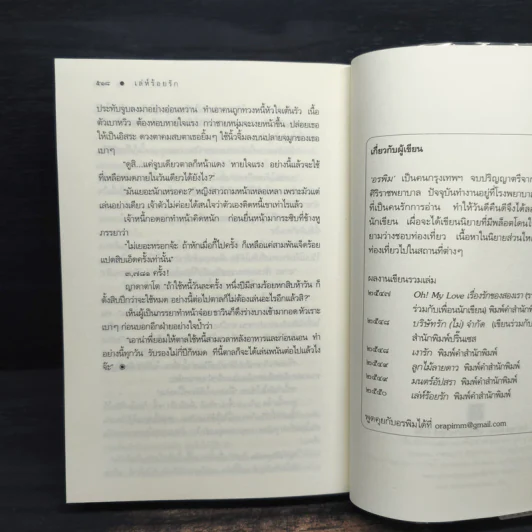 ๕๑๘ ● เล่ห์ร้อยรัก
ประทับจูบลงมาอย่างอ่อนหวาน ทำเอาคนถูกทวงหนี้หัวใจเต้นรัว เนื้อ
ตัวเบาหวิว ต้องหอบหายใจแรง กว่าชายหนุ่มจะเงยหน้าขึ้น ปล่อยเธอ
ให้เป็นอิสระ ดวงตาคมสบตาเธอยิ้มๆ ใช้นิ้วจิ้มลงบนปลายจมูกของเธอ
เบาๆ
“ดูสิ...แค่จูบเดียวตาลก็หน้าแดง หายใจแรง อย่างนี้แล้วจะใช้
ที่เหลือหมดภายในวันเดียวได้ยังไง?”
“มันเยอะนักเหรอคะ?” หญิงสาวถามหน้าเหลอหลา เพราะมัวแต่
เล่นอย่างเดียว เจ้าตัวไม่ค่อยได้สนใจว่าตัวเองติดหนี้เขาเท่าไรแล้ว
เจ้าหนี้กอดอกทำหน้าคิดหนัก ก่อนยื่นหน้ามากระซิบที่ข้างหู
ภรรยาว่า
“ไม่เยอะหรอกจ้ะ ถ้าหักเมื่อกี้ไปครั้ง ก็เหลือแค่สามพันเจ็ดร้อย
แปดสิบเอ็ดครั้งเท่านั้น”
๓,๗๘๑ ครั้ง!
ญาตาตาโต “ถ้าใช้หนี้วันละครั้ง หนึ่งปีมีสามร้อยหกสิบห้าวัน ก็
ตั้งสิบปีกว่าจะใช้หมด อย่างนี้ต่อไปตาลก็ไม่ต้องเล่นอะไรอีกแล้วสิ?”
เห็นผู้เป็นภรรยาทำหน้าจ๋อย ชาวินก็ดึงร่างบางเข้ามากอด หัวเราะ
เบาๆ ก่อนบอกอีกฝ่ายอย่างใจป้ำว่า
“เอาน่าพี่ยอมให้ตาลใช้หนี้สามเวลาหลังอาหารและก่อนนอน ทำ
อย่างนี้ทุกวัน รับรองไม่กี่ปีก็หมด ทีนี้ตาลก็จะได้เล่นพนันต่อไปแล้วไง
จ๊ะ”
เกี่ยวกับผู้เขียน
‘อรพิม’ เป็นคนกรุงเทพฯ จบปริญญาตรีจาก
ศิริราชพยาบาล ปัจจุบันทำงานอยู่ที่โรงพยาบา
ที่เป็นคนรักการอ่าน ทำให้วันดีคืนดีจึงได้ล
นักเขียน เผื่อจะได้เขียนนิยายที่มีพล็อตโดนใ
ยามว่างชอบท่องเที่ยว เนื้อหาในนิยายส่วนให
ท่องเที่ยวไปในสถานที่ต่างๆ
ผลงานเขียนรวมเล่ม
๒๕๔๗ Oh! My Love เรื่องรักของสองเรา (ร
ร่วมกับเพื่อนนักเขียน) พิมพ์คำสำนักพิม
๒๕๔๘ บริษัทรัก (ไม่) จำกัด (เขียนร่วมกับ
สำนักพิมพ์ปริ๊นเซส
๒๕๔๘ เงารัก พิมพ์คำสำนักพิมพ์
๒๕๔๙ ลูกไม้ลายดาว พิมพ์คำสำนักพิมพ์
๒๕๔๙ มนตร์อัปสรา พิมพ์คำสำนักพิมพ์
๒๕๕๐ เล่ห์ร้อยรัก พิมพ์คำสำนักพิมพ์
พูดคุยกับอรพิมได้ที่ orapimm@gmail.com